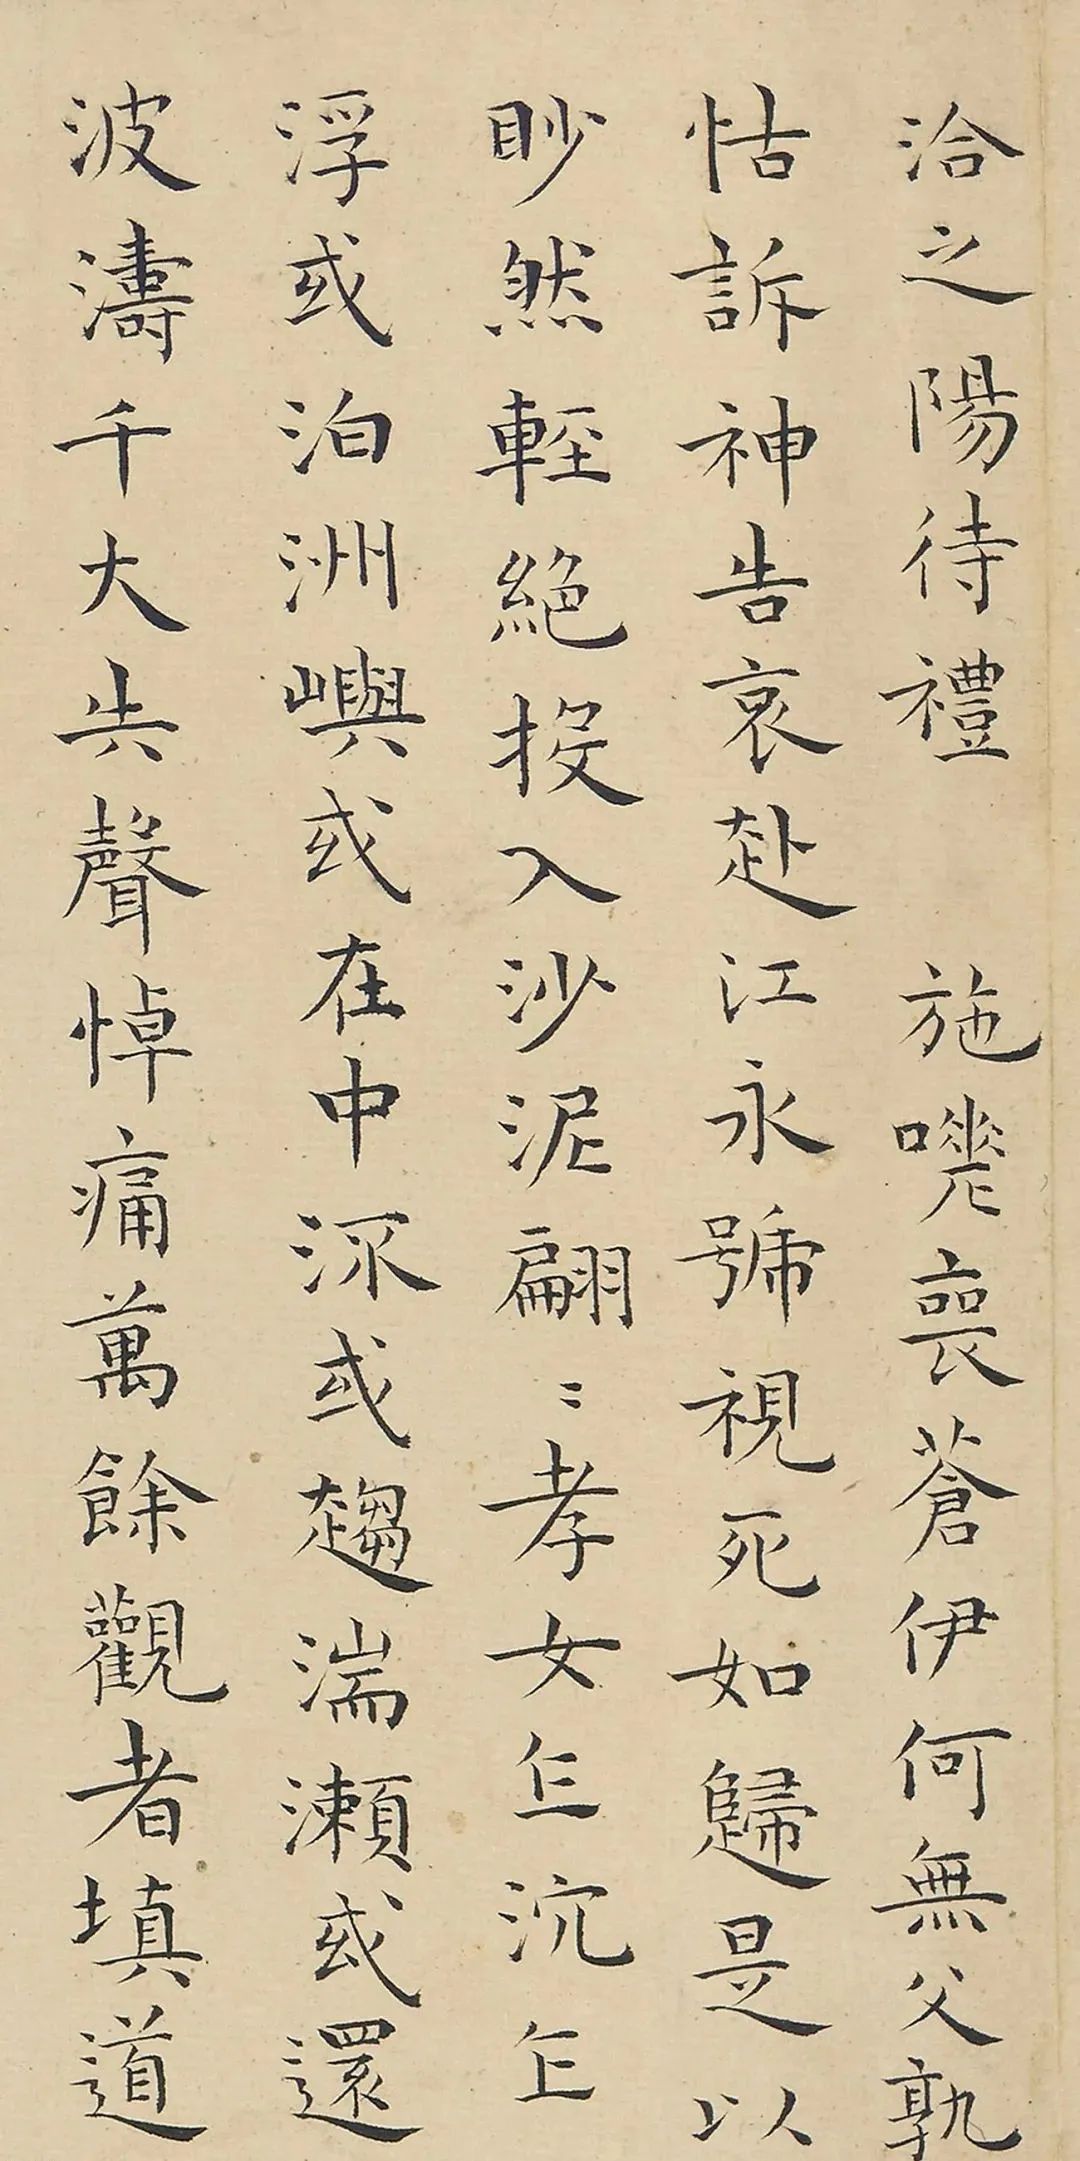 洽之陽待禮 施嗟喪蒼伊何無父孰
怙訴神告哀赴江永號視死如歸是以
眇然輕絕投入沙泥翩〻孝女乍沉乍
浮或泊洲嶼或在中流或趨湍瀨或還
波濤千夫失聲悼痛萬餘觀者填道